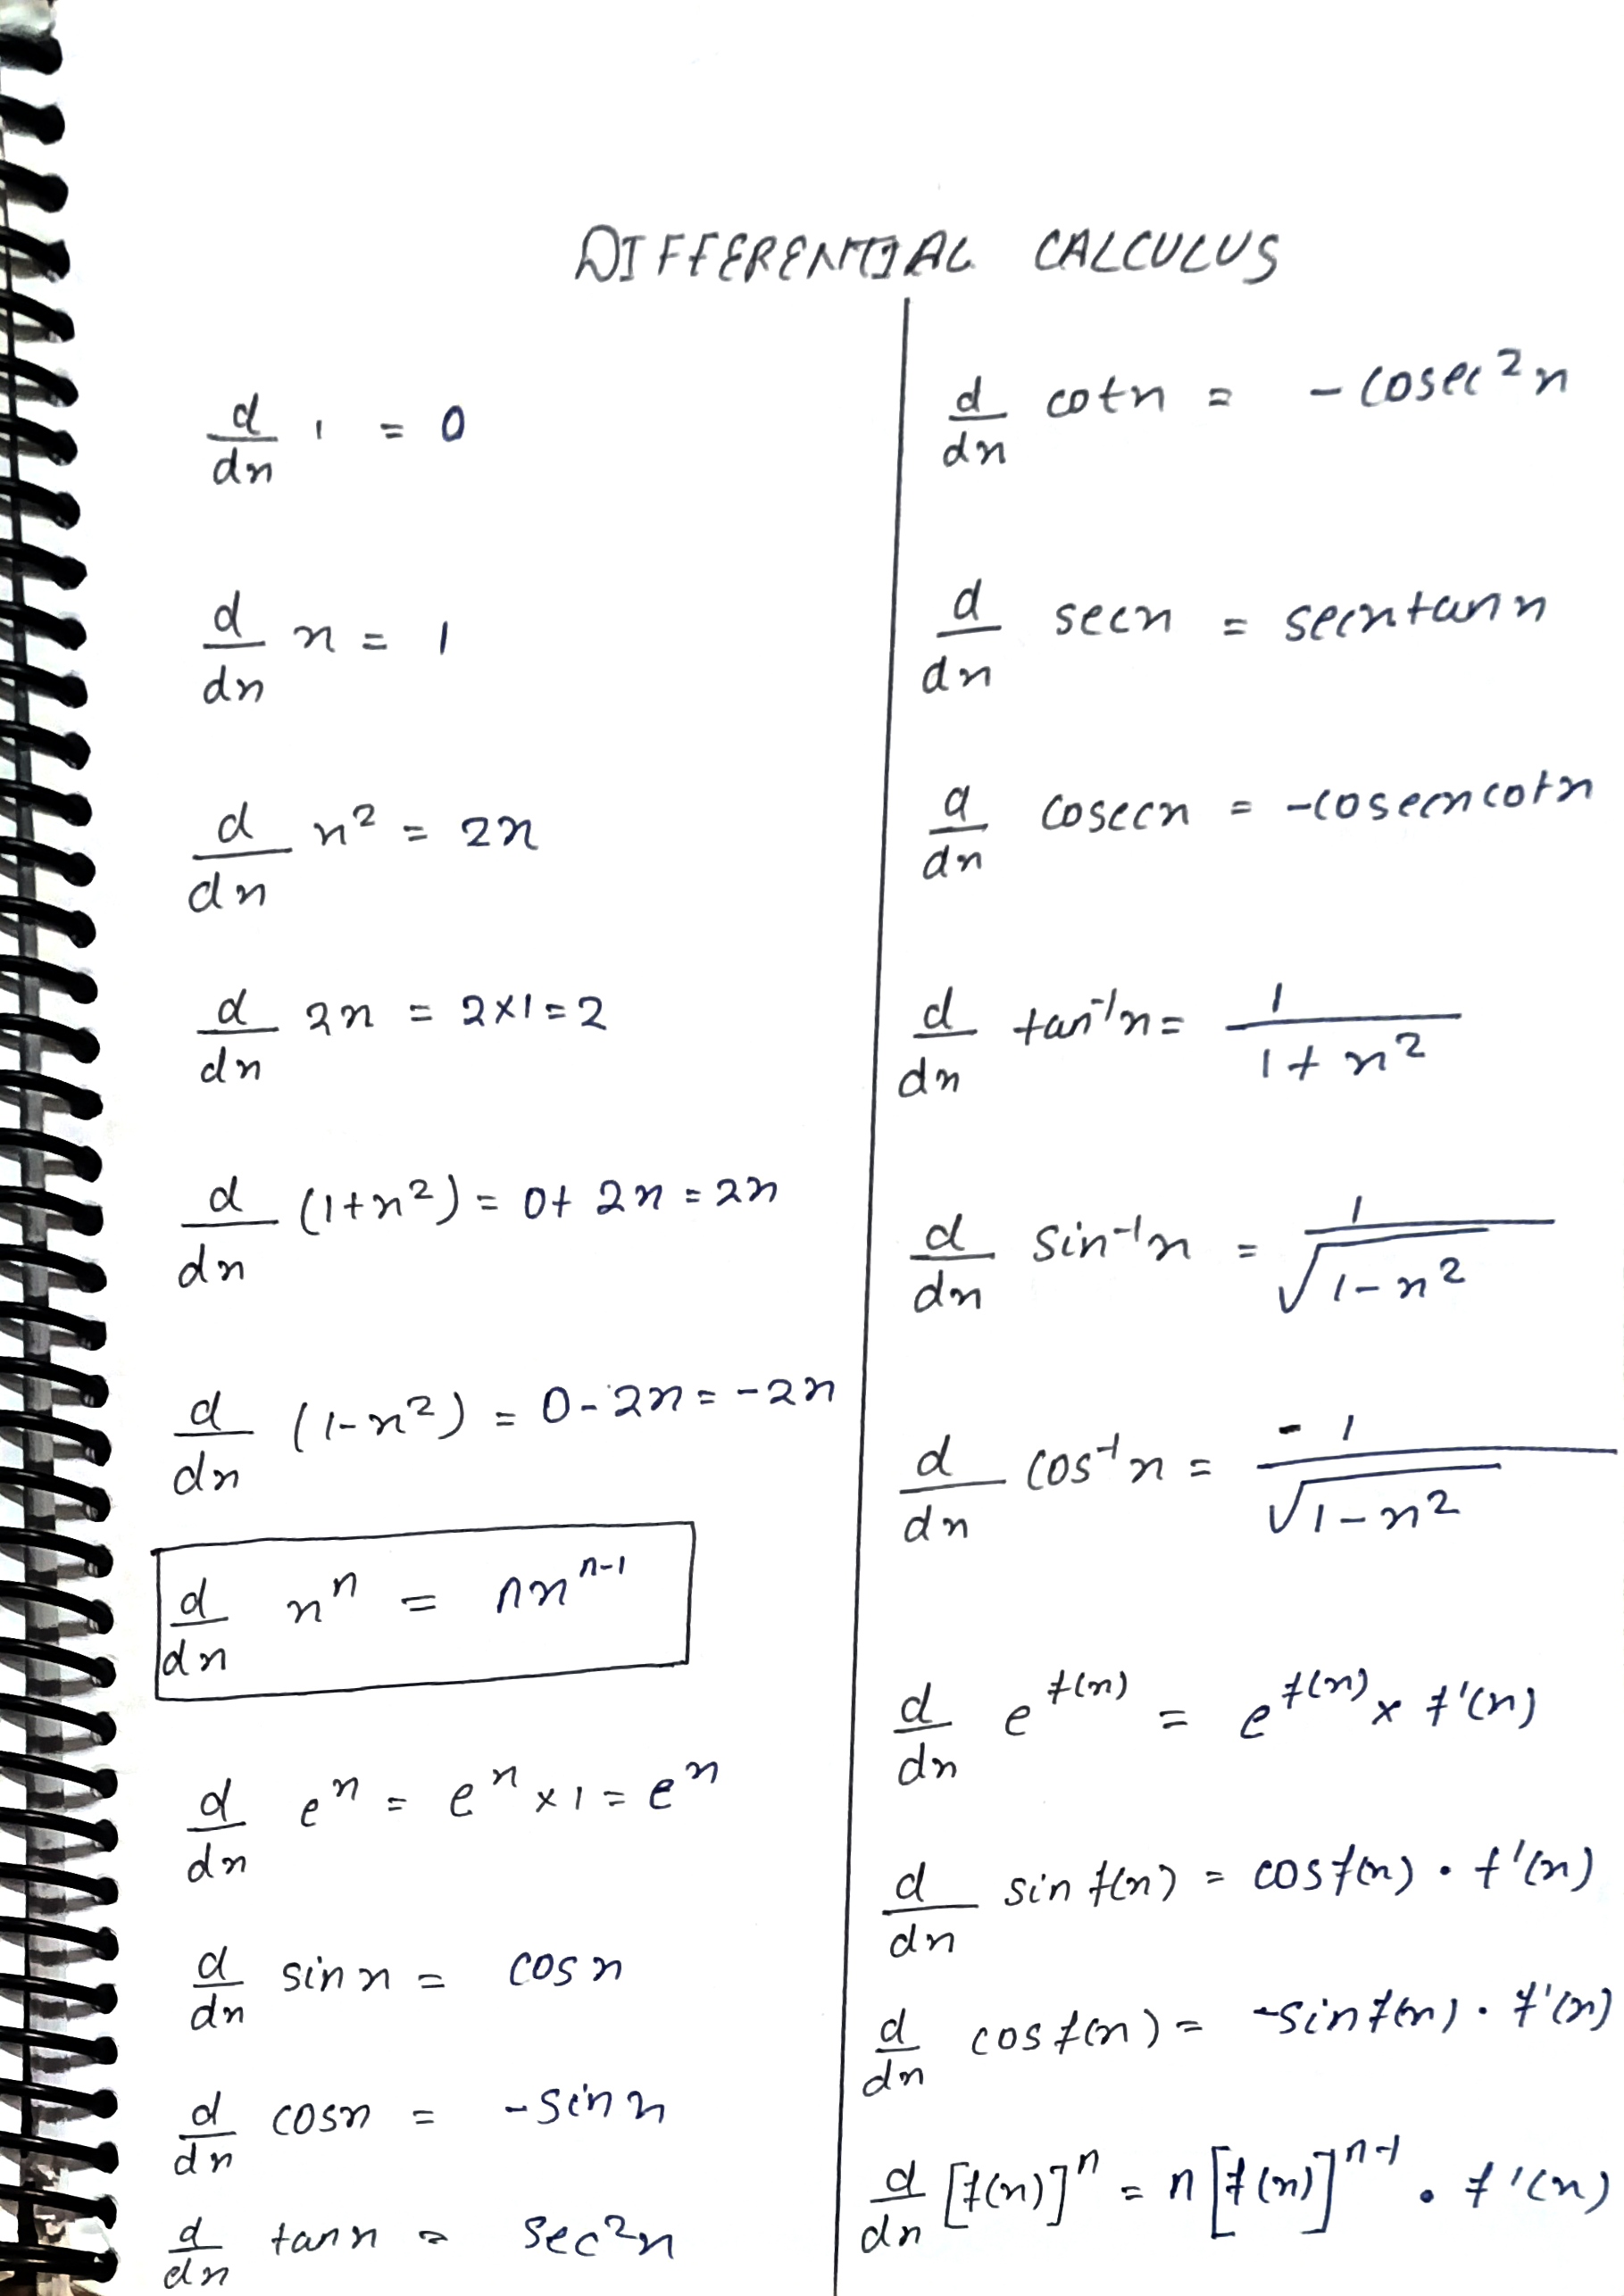 DIFFERENTIAL CALCULUS
d/dx 1 = 0
d/dx x = 1
d/dx x² = 2x
d/dx 2x = 2×1=2
d/dx (1+x²) = 0+ 2x = 2x
d/dx (1-x²) = 0-2x = -2x
d/dx xⁿ = nxⁿ⁻¹
d/dx eˣ = eˣ × 1 = eˣ
d/dx sin x = cos x
d/dx cosx = -sin x
d/dx tan x = sec²x
d/dx cotx = -cosec²x
d/dx secx = secxtan x
d/dx cosecx = -cosecxcotx
d/dx tan⁻¹x = 1/(1+x²)
d/dx sin⁻¹x = 1/√(1-x²)
d/dx cos⁻¹x = -1/√(1-x²)
d/dx e^f(x) = e^f(x) × f'(x)
d/dx sin f(x) = cosf(x) • f'(x)
d/dx cos f(x) = -sinf(x) • f'(x)
d/dx [f(x)]ⁿ = n[f(x)]ⁿ⁻¹ • f'(x)